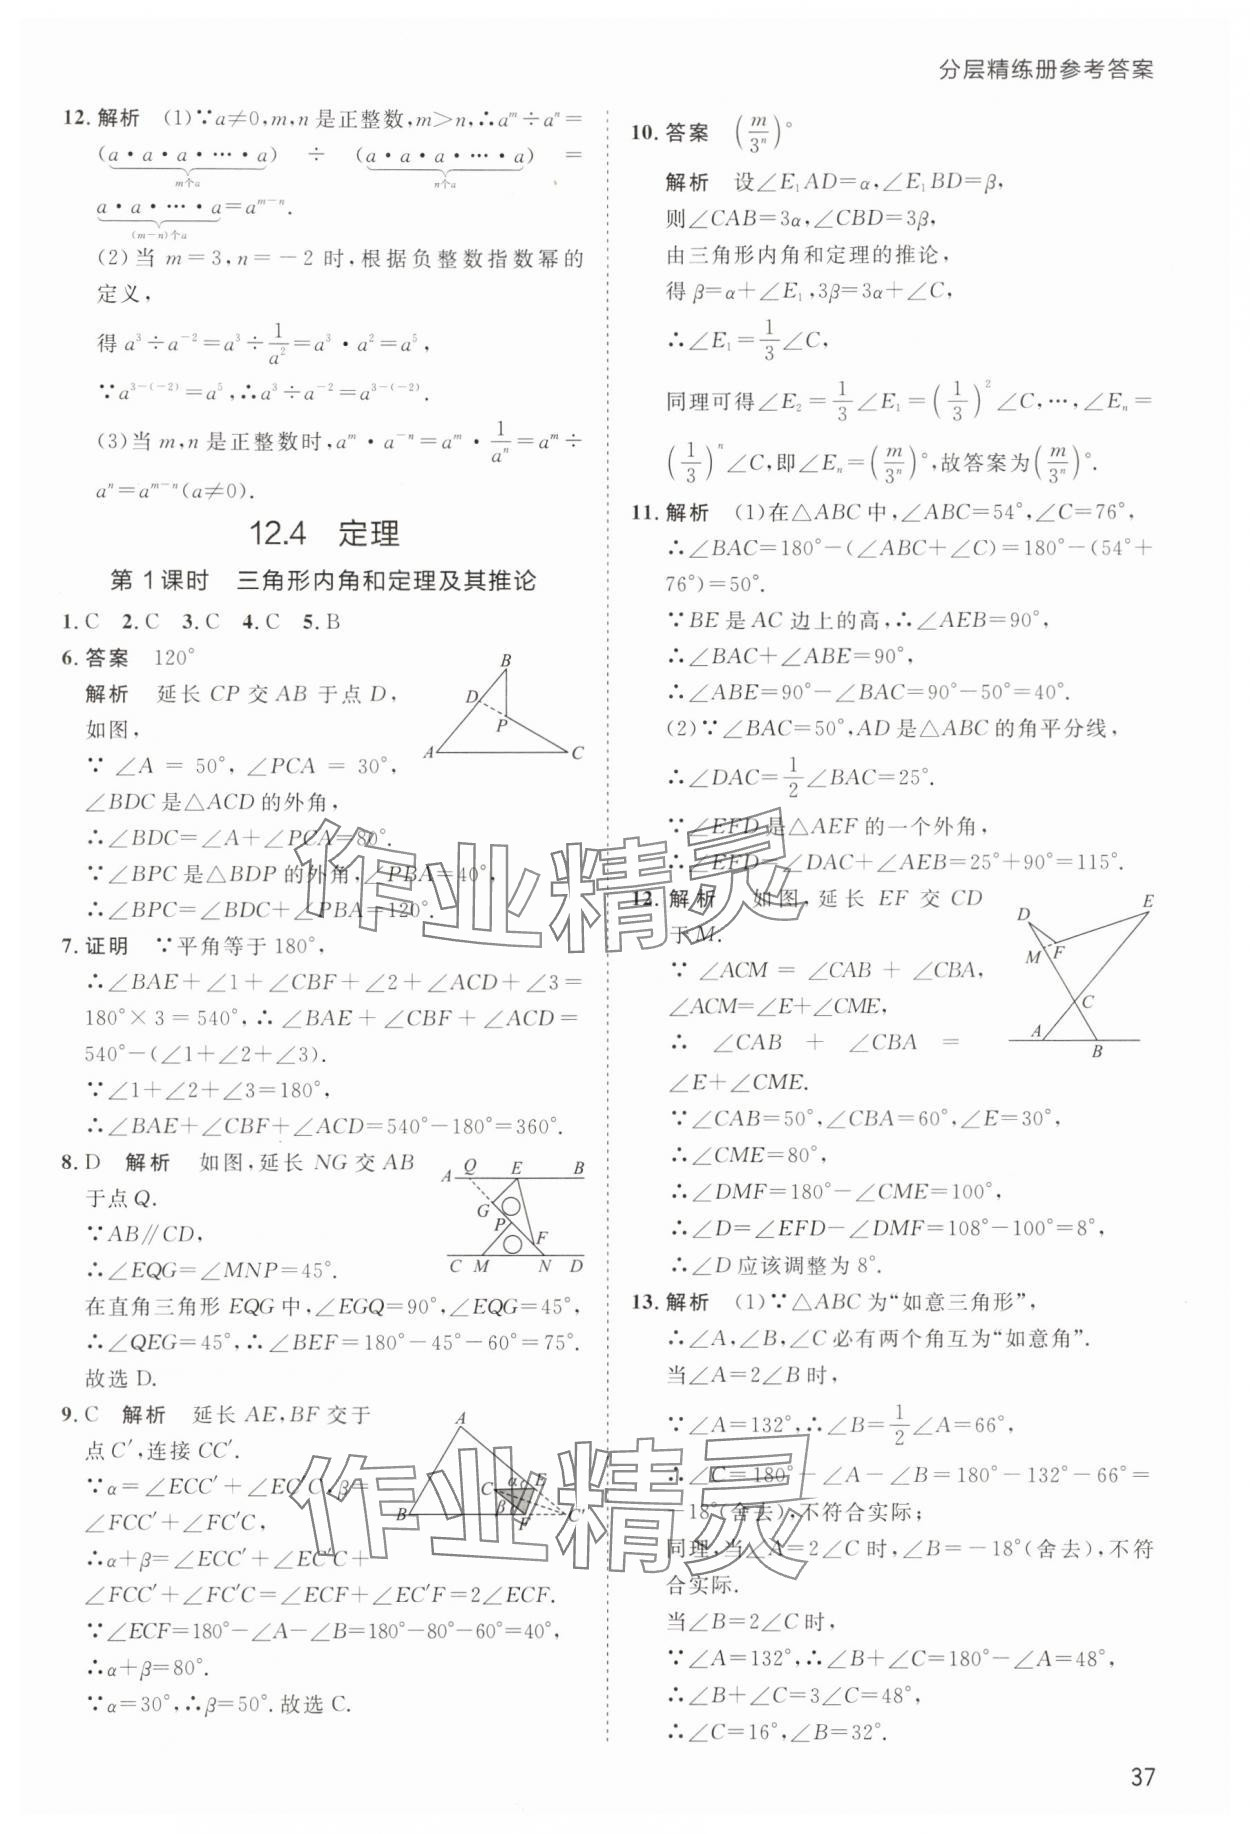 分层精练册参考答案
12. 解析 (1)∵a≠0,m,n是正整数,m>n,∴aᵐ÷aⁿ=
(a·a·a·…·a) ÷ (a·a·a·…·a) =
m个a n个a
a·a·…·a=aᵐ⁻ⁿ.
(m-n)个a
(2)当 m=3,n=-2 时,根据负整数指数幂的
定义,
得 a³÷a⁻²=a³÷1/a²=a³·a²=a⁵,
∵a³⁻⁽⁻²⁾=a⁵,∴a³÷a⁻²=a³⁻⁽⁻²⁾.
(3)当 m,n是正整数时,aᵐ·a⁻ⁿ=aᵐ·1/aⁿ=aᵐ÷
aⁿ=aᵐ⁻ⁿ(a≠0).
12.4 定理
第1课时 三角形内角和定理及其推论
1. C 2. C 3. C 4. C 5. B
6. 答案 120°
解析 延长 CP 交 AB 于点 D,
如图,
∵ ∠A = 50°, ∠PCA = 30°,
∠BDC是△ACD的外角,
∴∠BDC=∠A+∠PCA=80°.
∵∠BPC是△BDP的外角,∠PBA=40°,
∴∠BPC=∠BDC+∠PBA=120°.
B
D
P
A
C
7. 证明 ∵平角等于180°,
∴∠BAE+∠1+∠CBF+∠2+∠ACD+∠3=
180°×3=540°,∴∠BAE+∠CBF+∠ACD=
540°-(∠1+∠2+∠3).
∵∠1+∠2+∠3=180°,
∴∠BAE+∠CBF+∠ACD=540°-180°=360°.
8. D 解析 如图,延长 NG 交 AB
于点Q.
∵AB∥CD,
∴∠EQG=∠MNP=45°.
在直角三角形EQG中,∠EGQ=90°,∠EQG=45°,
∴∠QEG=45°,∴∠BEF=180°-45°-60°=75°.
故选 D.
A Q E B
G
P
F
C M N D
9. C 解析 延长 AE,BF 交于
点C′,连接CC′.
∵α=∠ECC′+∠EC′C,β=
∠FCC′+∠FC′C,
∴α+β=∠ECC′+∠EC′C+
∠FCC′+∠FC′C=∠ECF+∠EC′F=2∠ECF.
∵∠ECF=180°-∠A-∠B=180°-80°-60°=40°,
∴α+β=80°.
∵α=30°,∴β=50°.故选 C.
A
C α E
β
B F C′
10. 答案 (m/3ⁿ)°
解析 设∠E₁AD=α,∠E₁BD=β,
则∠CAB=3α,∠CBD=3β,
由三角形内角和定理的推论,
得 β=α+∠E₁,3β=3α+∠C,
∴∠E₁=1/3∠C,
同理可得∠E₂=1/3∠E₁=(1/3)²∠C,…,∠Eₙ=
(1/3)ⁿ∠C,即∠Eₙ=(m/3ⁿ)°,故答案为(m/3ⁿ)°.
11. 解析 (1)在△ABC中,∠ABC=54°,∠C=76°,
∴∠BAC=180°-(∠ABC+∠C)=180°-(54°+
76°)=50°.
∵BE是AC边上的高,∴∠AEB=90°,
∴∠BAC+∠ABE=90°,
∴∠ABE=90°-∠BAC=90°-50°=40°.
(2)∵∠BAC=50°,AD是△ABC的角平分线,
∴∠DAC=1/2∠BAC=25°.
∵∠EFD是△AEF的一个外角,
∴∠EFD=∠DAC+∠AEB=25°+90°=115°.
12. 解析 如图,延长 EF 交 CD
于M.
∵ ∠ACM = ∠CAB + ∠CBA,
∠ACM=∠E+∠CME,
∴ ∠CAB + ∠CBA =
∠E+∠CME.
∵∠CAB=50°,∠CBA=60°,∠E=30°,
∴∠CME=80°,
∴∠DMF=180°-∠CME=100°,
∴∠D=∠EFD-∠DMF=108°-100°=8°,
∴∠D应该调整为8°.
E
D
M F
C
A
B
13. 解析 (1)∵△ABC为“如意三角形”,
∴∠A,∠B,∠C必有两个角互为“如意角”.
当∠A=2∠B时,
∵∠A=132°,∴∠B=1/2∠A=66°,
∴∠C=180°-∠A-∠B=180°-132°-66°=
-18°(舍去),不符合实际;
同理,当∠A=2∠C时,∠B=-18°(舍去),不符
合实际.
当∠B=2∠C时,
∵∠A=132°,∴∠B+∠C=180°-∠A=48°,
∴∠B+∠C=3∠C=48°,
∴∠C=16°,∠B=32°.
作业精灵
作业精灵
37